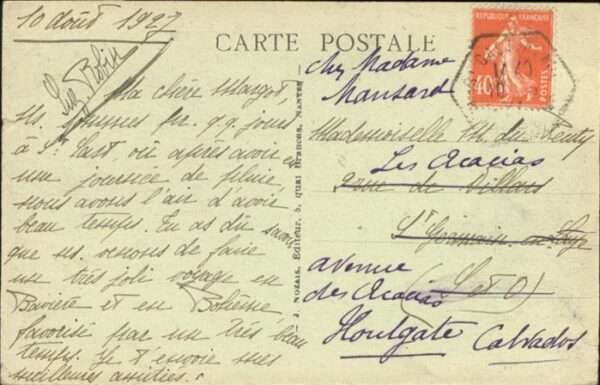 10 Août 1927
CARTE POSTALE
REPUBLIQUE FRANÇAISE
40c
POSTES
Luz Robin
Ma chère Margot,
Ns. sommes pr. q.q. jours
à St. Cast, où après avoir eu
une journée de pluie,
nous avons l'air d'avoir
beau temps. Tu as dû savoir
que ns. venons de faire
un très joli voyage en
Bavière et en Bohême,
favorisé par un très beau
temps. Je t'envoie mes
meilleures amitiés.
J. NOZAIS, Editeur, 5, quai Brancas, NANTES
chez Madame
Mansard
Mademoiselle M. du
Les Acacias
rue de Villars
St Germain en Laye
(S et O)
avenue
des Acacias
Houlgate Calvados